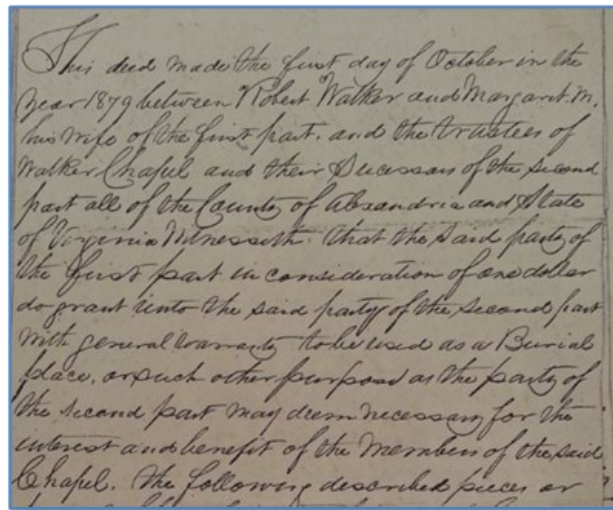 This deed made the first day of October in the
year 1879 between Robert Walker and Margaret M.
his wife of the first part. and the trustees of
Walker Chapel and their Sucessors of the second
part all of the County of Alexandria and State
of Virginia Witnesseth. that the said party of
the first part in consideration of one dollar
do grant unto the said party of the second part
with general warranty to be used as a Burial
place, or such other purpose as the party of
the second part may deem necessary for the
interest and benefit of the Members of the said
Chapel. the following described pieces or